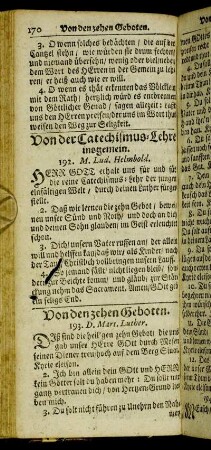 170 Von den zehen Geboten.
3. O wenn solches bedächten / die auf der
Cantzel stehn / wie würden sie drum fechten /
und niemand übersehn / wenig oder viel niemehr
dem Wort des HErren in der Gemein zu le-
ren / er heiß auch wie er will.
4. O wenn es thät erkennen das Völcklein
mit dem Rath / hertzlich würd es
von Göttlicher Genad / sagen allezeit:
den HErren preisen / der uns im Wort thut
weisen den Weg zur Seligkeit.
Von der Catechismus-Lehre
insgemein.
192. M. Lud. Helmbold.
HERR GOTT erhalt uns für und für
die reine Catechismus-Lehr der jungen
einfältigen Welt / durch deinen Luther fürge-
stellt.
2. Daß wir lernen die zehn Gebot / bewei-
nen unser Sünd und Noth / und doch an dich
und deinen Sohn glauben im Geist erleuchtet
schon.
3. Dich / unsern Vater ruffen an / der allen
will und helffen kan / daß wir als Kinder nach
der Tauf Christlich vollbringen den Lauff.
4. So jemand fällt nicht liegen bleib / son-
dern zur Beichte komm und gläub / zur Stär-
kung nehm das Sacrament. Amen / GOtt geb
ein selige End.
Von den zehen Geboten.
193. D. Mart. Luther.
DIß sind die heilgen zehn Gebot die uns
gab unser HErre GOtt durch Mosen
seinen Diener treu / hoch auf dem Berg Sinai.
Kyrie eleison.
2. Ich bin allein dein GOtt und HERR
kein Götter solt du haben mehr: Du solt mir
gantz vertrauen dich / von Hertzen Grund lie-
ben mich. Kyrie eleison.
3. Du solt nicht führen zu Unehrn den Nah-